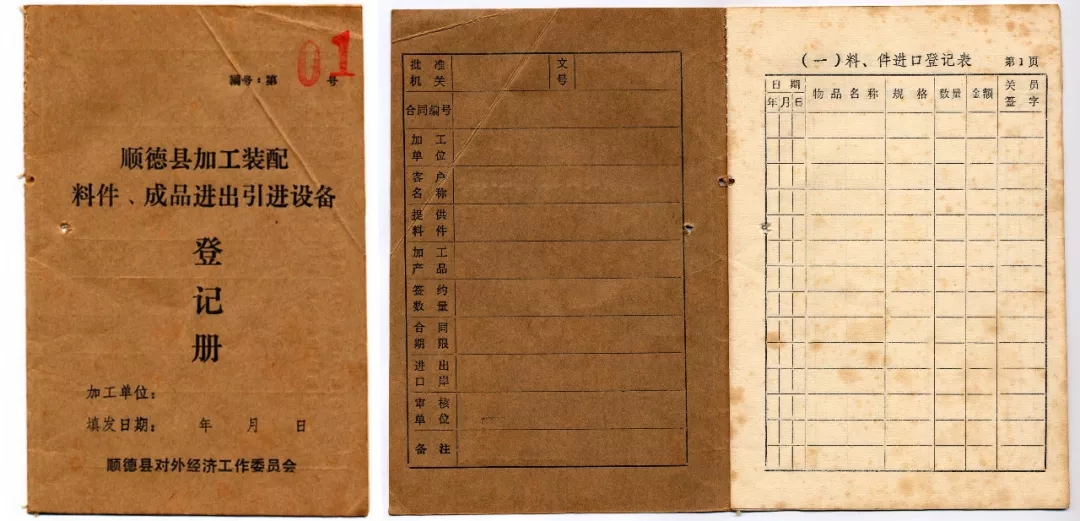 编号:第 01 号
顺德县加工装配
料件、成品进出引进设备
登
记
册
加工单位:
填发日期: 年 月 日
顺德县对外经济工作委员会
批准机关 文号
合同编号
加工单位
客户名称
提供料件
加工产品
签约数量
合同期限
进出口岸
审核单位
备注
(一)料、件进口登记表 第1页
日期 物品名称 规格 数量 金额 关员签字
年 月 日